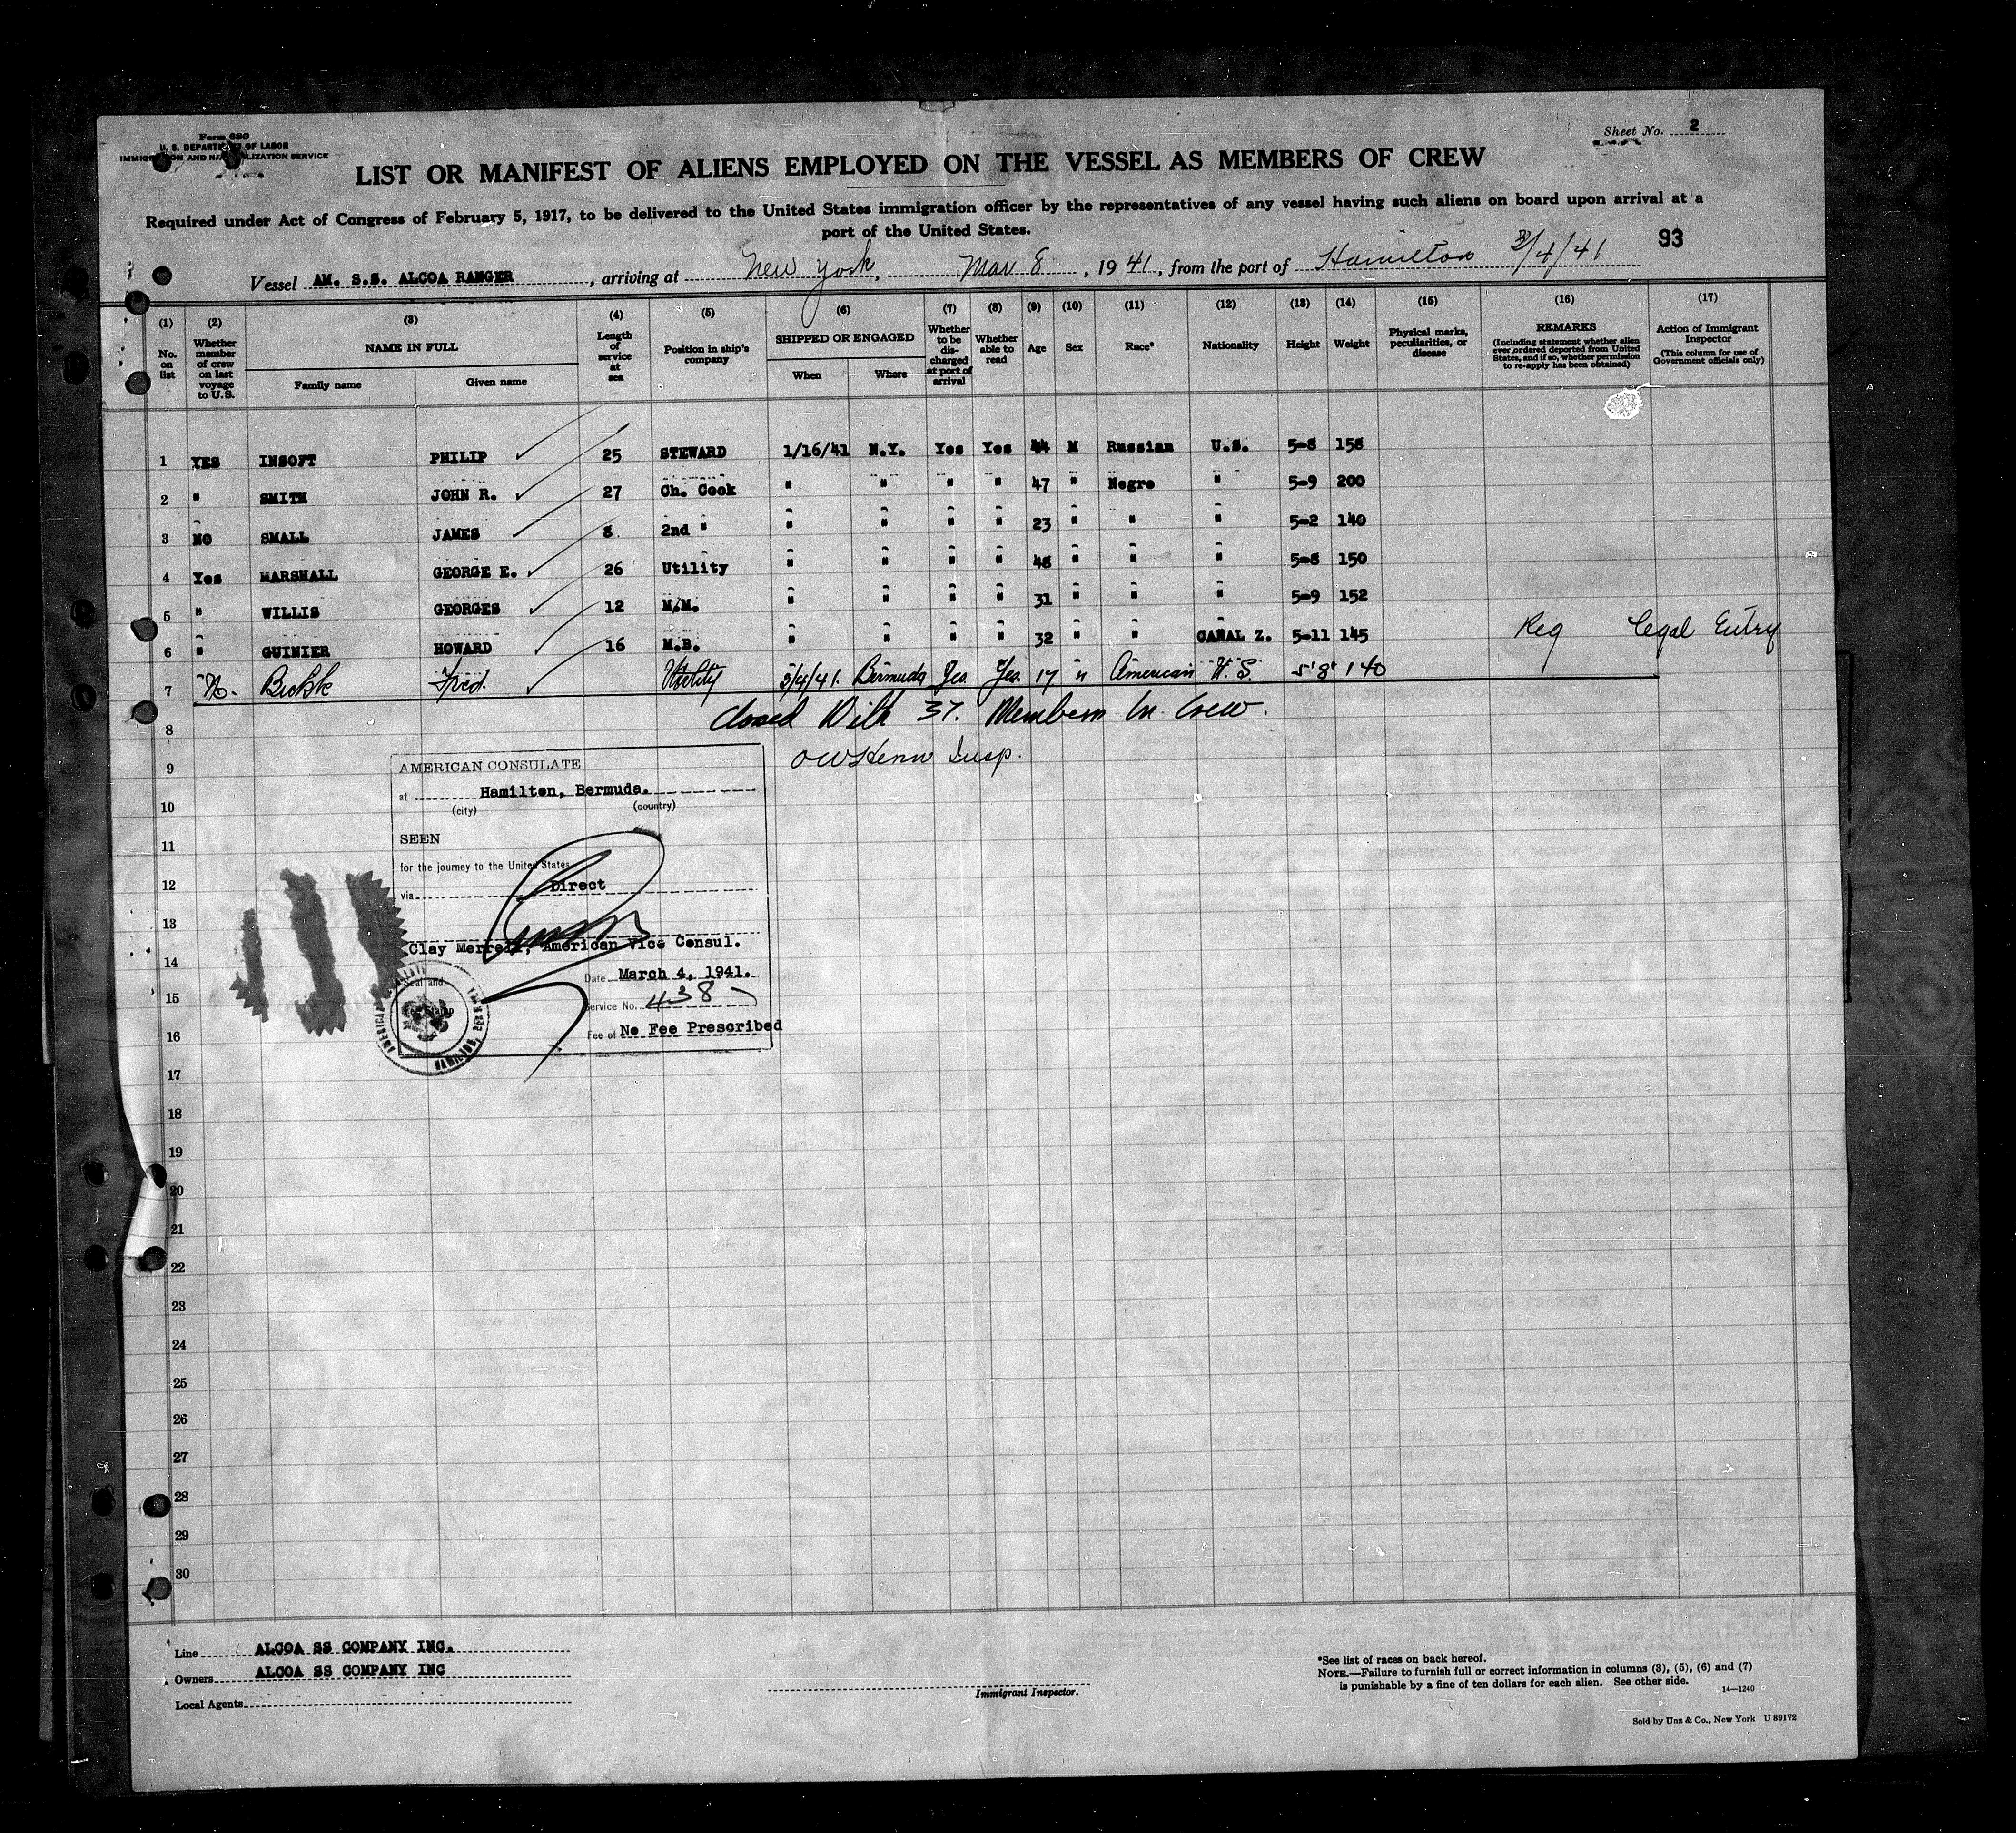 Form 680
U. S. DEPARTMENT OF LABOR
IMMIGRATION AND NATURALIZATION SERVICE
Sheet No. 2
LIST OR MANIFEST OF ALIENS EMPLOYED ON THE VESSEL AS MEMBERS OF CREW
Required under Act of Congress of February 5, 1917, to be delivered to the United States immigration officer by the representatives of any vessel having such aliens on board upon arrival at a
port of the United States.
93
Vessel AM. S.S. ALCOA RANGER, arriving at New York, Mar 8, 1941, from the port of Hamilton 3/4/41
(1) No. on list
(2) Whether member of crew on last voyage to U.S.
(3) NAME IN FULL
Family name Given name
(4) Length of service at sea
(5) Position in ship's company
(6) SHIPPED OR ENGAGED
When Where
(7) Whether to be discharged at port of arrival
(8) Whether able to read
(9) Age
(10) Sex
(11) Race*
(12) Nationality
(13) Height
(14) Weight
(15) Physical marks, peculiarities, or disease
(16) REMARKS (Including statement whether alien ever ordered deported from United States, and if so, whether permission to re-apply has been obtained)
(17) Action of Immigrant Inspector (This column for use of Government officials only)
1 YES INSOFT PHILIP 25 STEWARD 1/16/41 N.Y. Yes Yes 44 M Russian U.S. 5-8 158
2 " SMITH JOHN R. 27 Ch. Cook " " " " 47 " Negro " 5-9 200
3 NO SMALL JAMES 8 2nd " " " " " 23 " " " 5-2 140
4 Yes MARSHALL GEORGE E. 26 Utility " " " " 48 " " " 5-8 150
5 " WILLIS GEORGES 12 M.M. " " " " 31 " " " 5-9 152
6 " GUINIER HOWARD 16 M.B. " " " " 32 " " CANAL Z. 5-11 145 Reg Legal Entry
7 No. Fred. Utility 3/4/41. Bermuda Yes Yes. 17 " American U.S. 5'8" 140
8 Closed With 37. Members In Crew.
9 Insp.
10
11
12
13
14
15
16
17
18
19
20
21
22
23
24
25
26
27
28
29
30
AMERICAN CONSULATE
at Hamilton, Bermuda.
(city) (country)
SEEN
for the journey to the United States
via Direct
Clay Merrell, American Vice Consul.
Date March 4, 1941.
Service No. 438
Fee of No Fee Prescribed
Seal and
Line ALCOA SS COMPANY INC.
Owners ALCOA SS COMPANY INC
Local Agents
Immigrant Inspector.
*See list of races on back hereof.
NOTE.—Failure to furnish full or correct information in columns (3), (5), (6) and (7)
is punishable by a fine of ten dollars for each alien. See other side.
14—1240
Sold by Unz & Co., New York U 89172